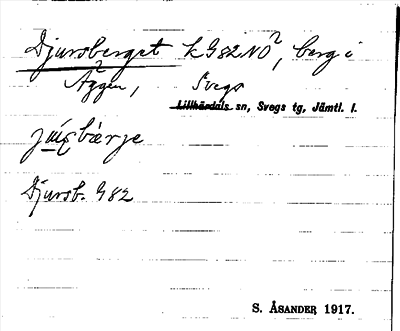 Djursberget k G82NÖ, berg i
Äggen, Svegs
Lillhärdals sn, Svegs tg, Jämtl. l.
Djursb. G82
S. ÅSANDER 1917.